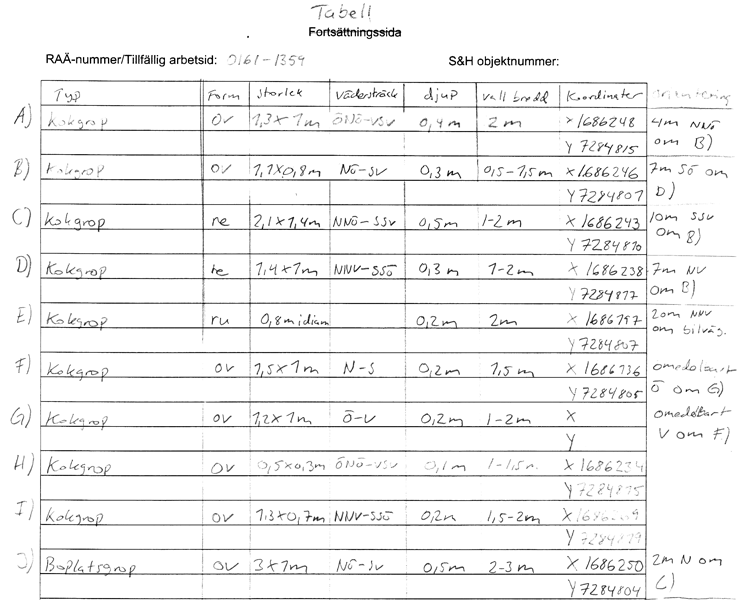 Tabell
Fortsättningssida
RAÄ-nummer/Tillfällig arbetsid: 0161-1359 S&H objektnummer:
Typ Form storlek vädersträck djup vall bredd Koordinater orientering
A) Kokgrop ov 1,3x1m ÖNÖ-VSV 0,4m 2m x 1686248 4m NNÖ
Y 7284815 om B)
B) Kokgrop ov 1,1x0,8m NÖ-SV 0,3m 0,5-1,5m X 1686246 7m SÖ om
Y 7284807 D)
C) Kokgrop re 2,1x1,4m NNÖ-SSV 0,5m 1-2m X 1686243 10m SSV
Y 7284810 om B)
D) Kokgrop re 1,4x1m NNV-SSÖ 0,3m 1-2m X 1686238 7m NV
Y 7284817 om B)
E) Kokgrop ru 0,8m idiam 0,2m 2m X 1686197 20m NNV
Y 7284807 om bilväg.
F) Kokgrop ov 1,5x1m N-S 0,2m 1,5m X 1686136 omedelbart
Y 7284805 Ö om G)
G) Kokgrop ov 1,2x1m Ö-V 0,2m 1-2m X omedelbart
Y V om F)
H) Kokgrop ov 0,5x0,3m ÖNÖ-VSV 0,1m 1-1,5m X 1686234
Y 7284815
I) Kokgrop ov 1,3x0,7m NNV-SSÖ 0,2m 1,5-2m X
Y 7284819
J) Boplatsgrop ov 3x1m NÖ-SV 0,5m 2-3m X 1686250 2m N om
Y 7284804 C)